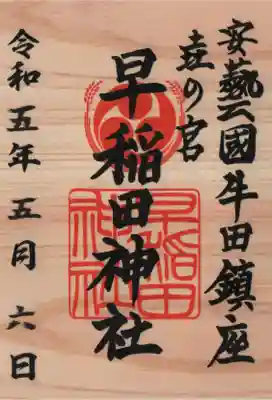 安藝國牛田鎮座
壺の宮
早稲田神社
早稲田神社
令和五年五月六日